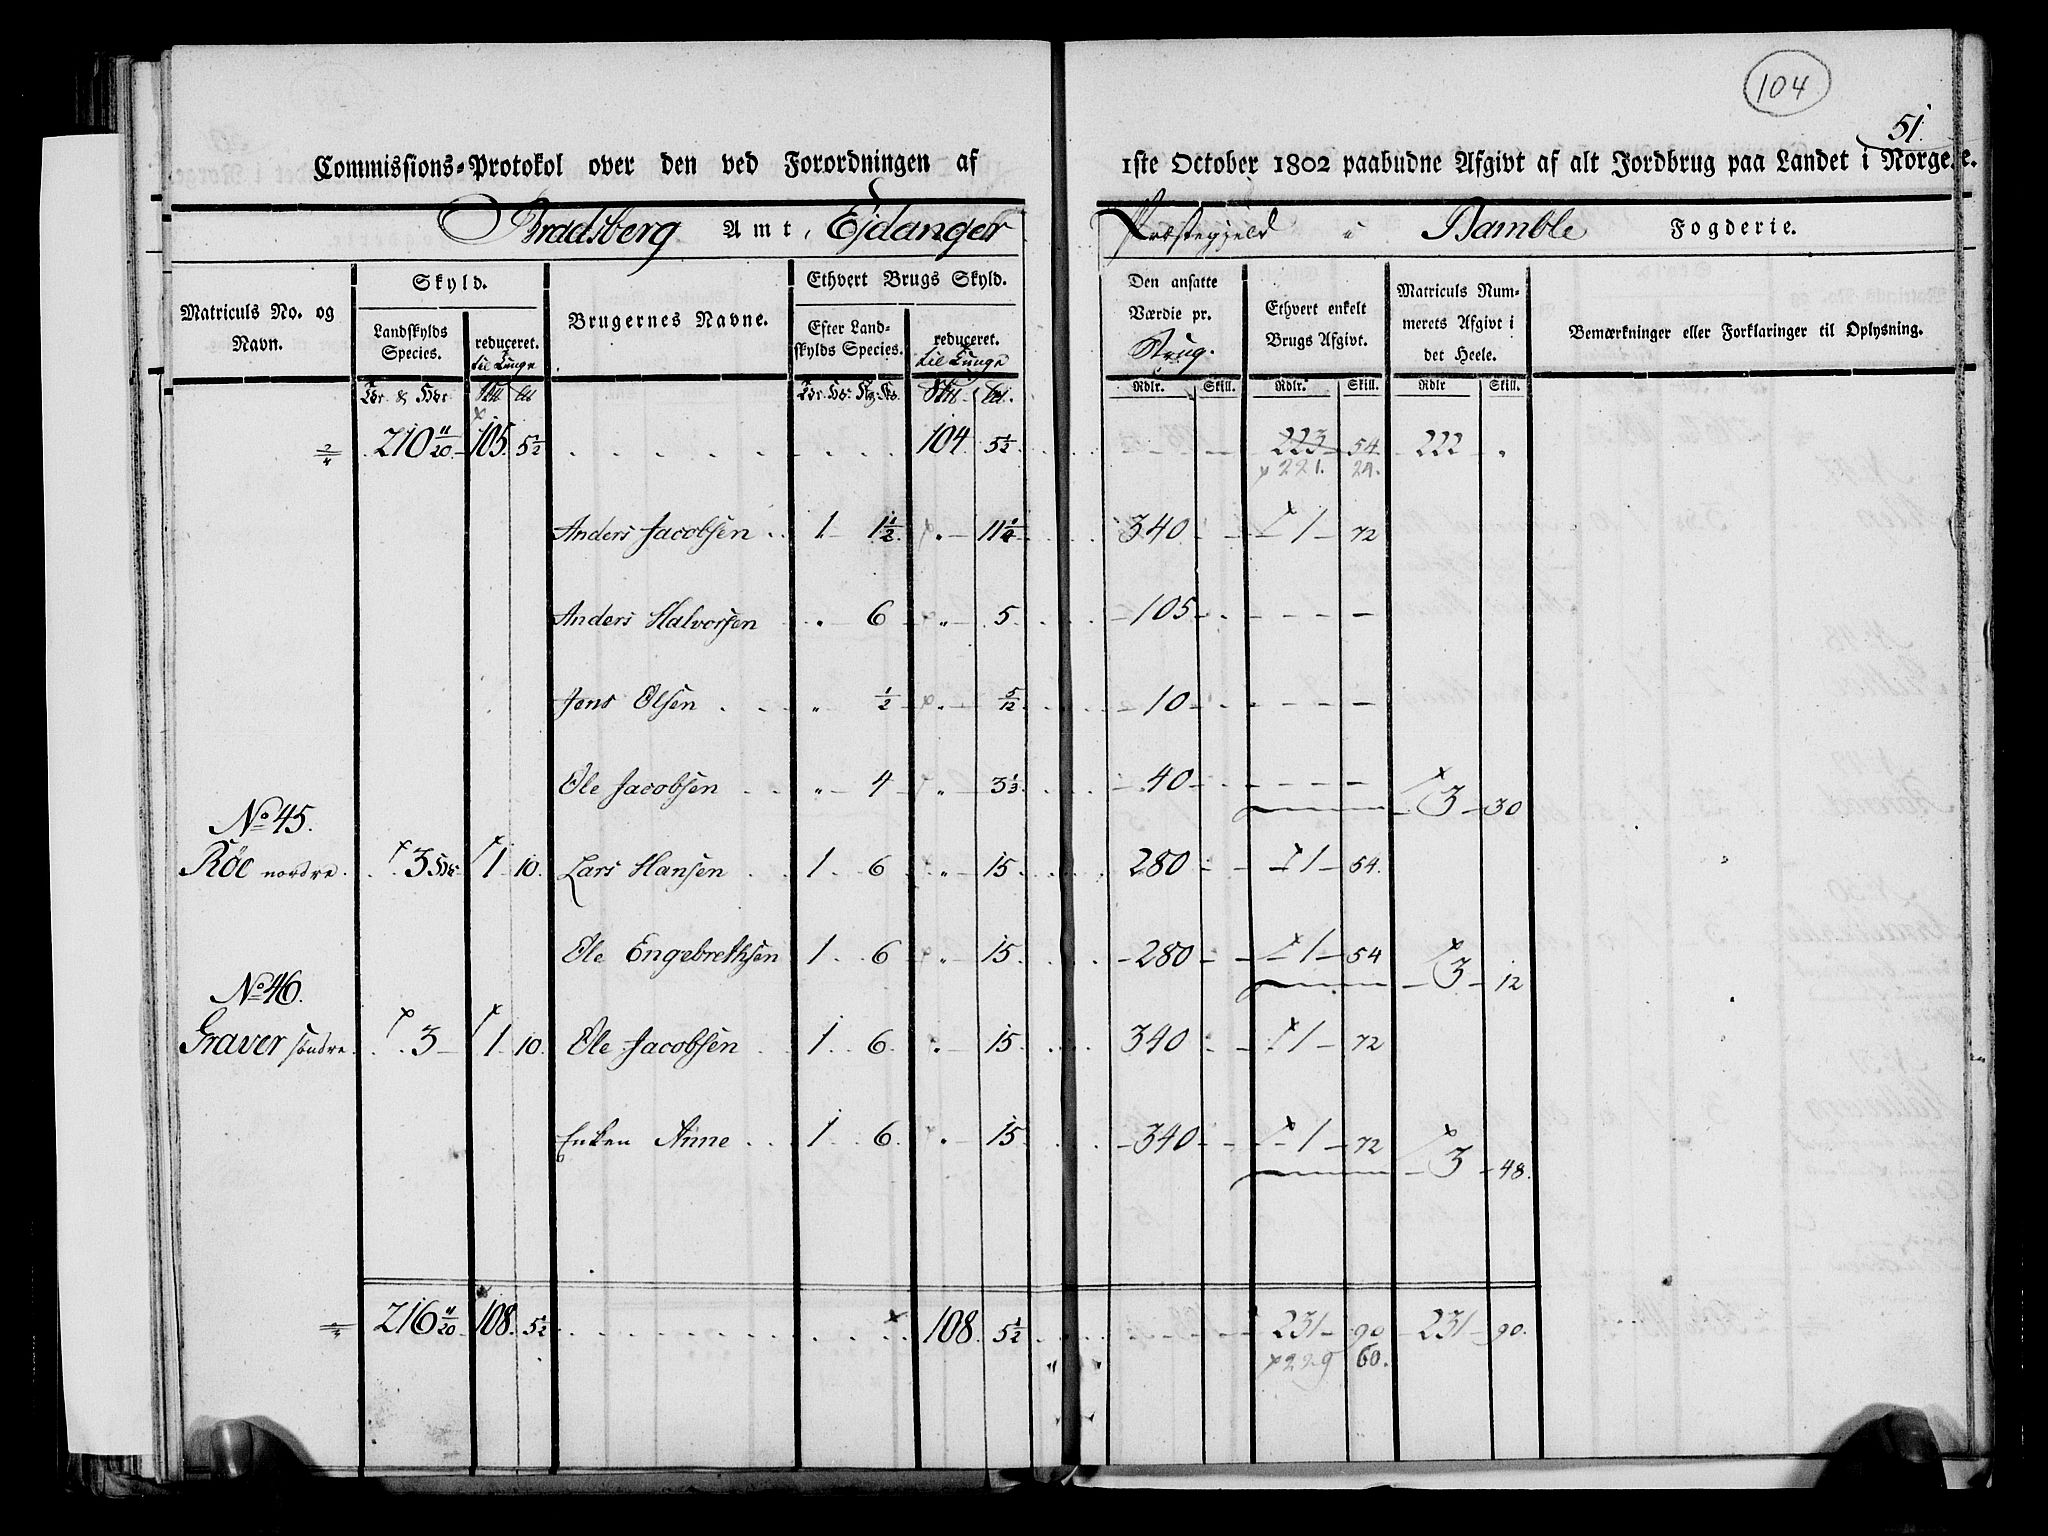 104
51.
Commissions-Protokol over den ved Forordningen af 1ste October 1802 paabudne Afgivt af alt Jordbrug paa Landet i Norge.
Bradsberg Amt, Ejdanger Præstegjeld i Bamble Fogderie.
Matriculs No. og Navn.
Skyld.
Landskylds Species.
reduceret. til Tunge
Brugernes Navne.
Ethvert Brugs Skyld.
Efter Landskylds Species.
reduceret. til Tunge
Den ansatte Værdie pr. Brug.
Ethvert enkelt Brugs Afgivt.
Matriculs Nummerets Afgivt i det Heele.
Bemærkninger eller Forklaringer til Oplysning.
Rdlr. Skill. Rdlr. Skill. Rdlr Skill.
210 11/20 105. 5½ 104 5½ 223 54 222 "
x 221. 24.
Anders Jacobsen 1 1½ " 11¼ 340 1 72
Anders Halvorsen " 6 " 5 105
Jens Olsen " ½ " 5/12 10
Ole Jacobsen " 4 " 3⅓ 40 3 30
No 45.
Röe nordre. 3 1 10. Lars Hansen 1 6 " 15 280 1 54.
Ole Engebrethsen 1 6 " 15. 280 1 54 3 12
No 46.
Graver söndre. 3 1 10. Ole Jacobsen 1 6. " 15. 340 1 72
Enken Anne 1 6. " 15. 340 1 72 3 48.
216 11/20 108. 5½ 108. 5½ 231 90 231 90.
x 229 60.